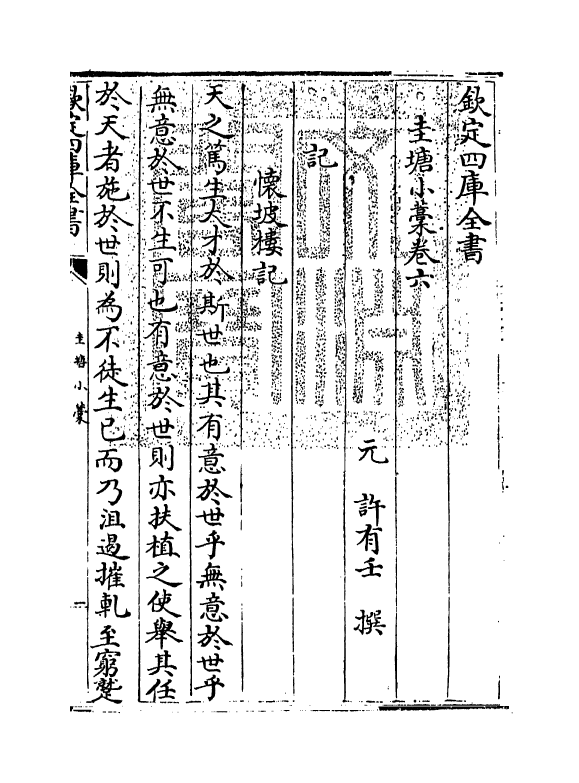 欽定四庫全書
圭塘小藁卷六
元 許有壬 撰
記
懷坡樓記
天之篤生大才於斯世也其有意於世乎無意於世乎
無意於世不生可也有意於世則亦扶植之使舉其任
於天者施於世則為不徒生已而乃沮遏摧軋至窮蹙
欽定四庫全書
圭塘小藁
一